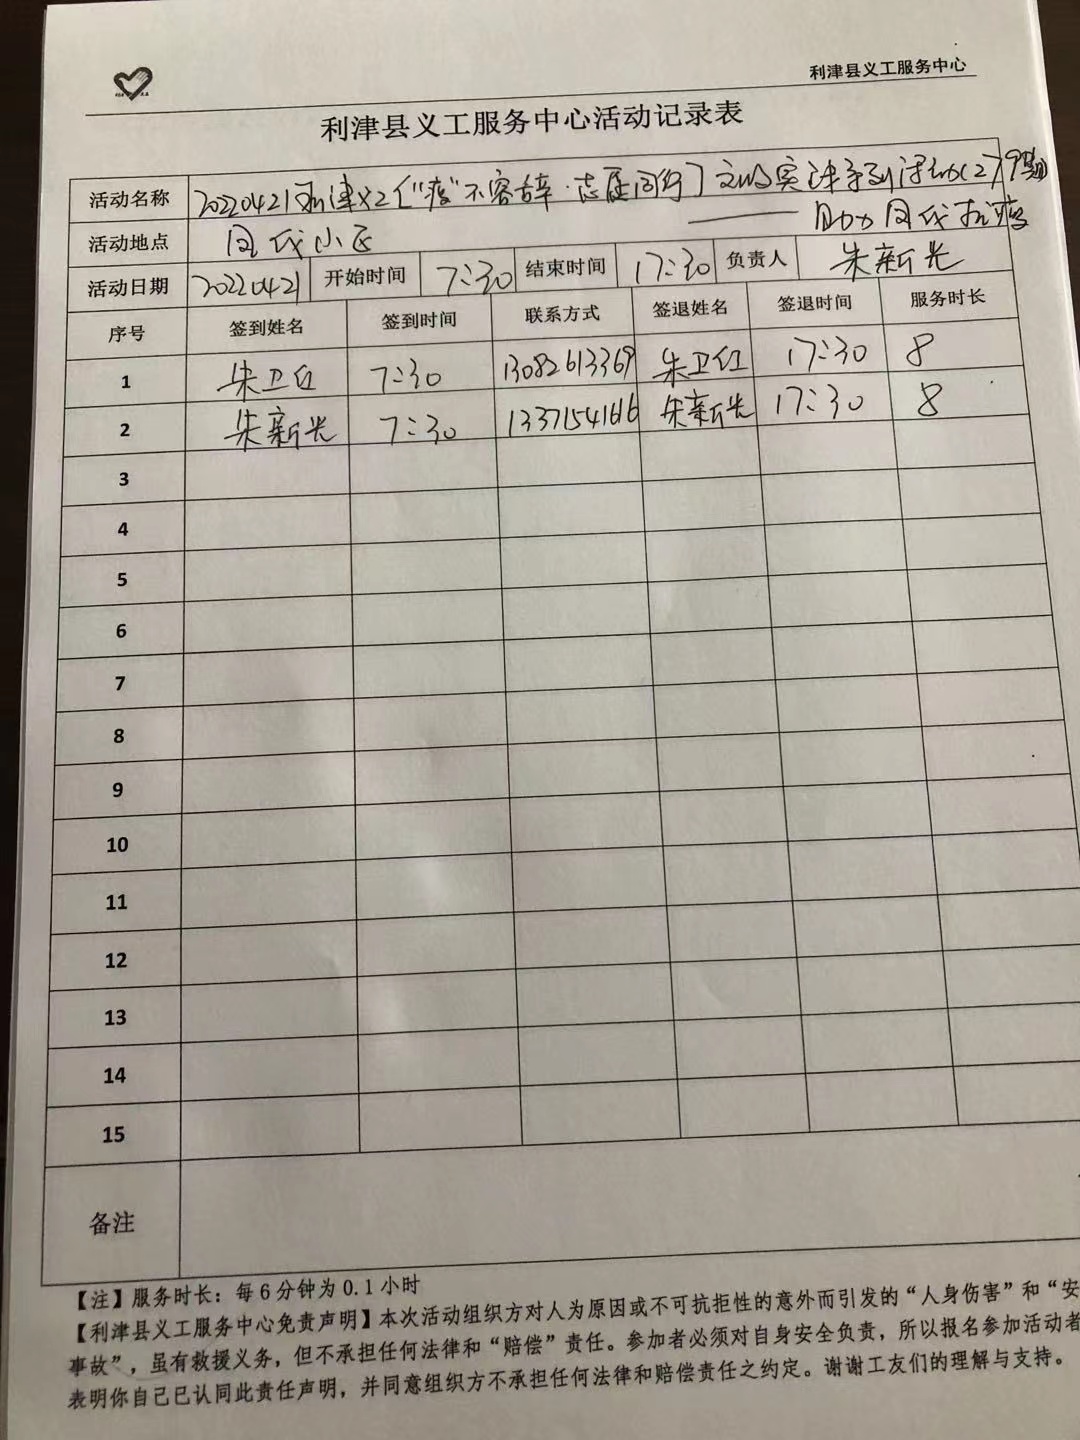 利津县义工服务中心
利津县义工服务中心活动记录表
活动名称 20220421利津义工“疫”不容辞·志愿同行 文明实践系列活动(279期)
—— 助力 抗疫
活动地点 小区
活动日期 20220421 开始时间 7:30 结束时间 17:30 负责人 朱新光
序号 签到姓名 签到时间 联系方式 签退姓名 签退时间 服务时长
1 朱卫红 7:30 13082613369 朱卫红 17:30 8
2 朱新光 7:30 朱新光 17:30 8
3
4
5
6
7
8
9
10
11
12
13
14
15
备注
【注】服务时长：每6分钟为0.1小时
【利津县义工服务中心免责声明】本次活动组织方对人为原因或不可抗拒性的意外而引发的“人身伤害”和“安
事故”，虽有救援义务，但不承担任何法律和“赔偿”责任。参加者必须对自身安全负责，所以报名参加活动者
表明你自己已认同此责任声明，并同意组织方不承担任何法律和赔偿责任之约定。谢谢工友们的理解与支持。